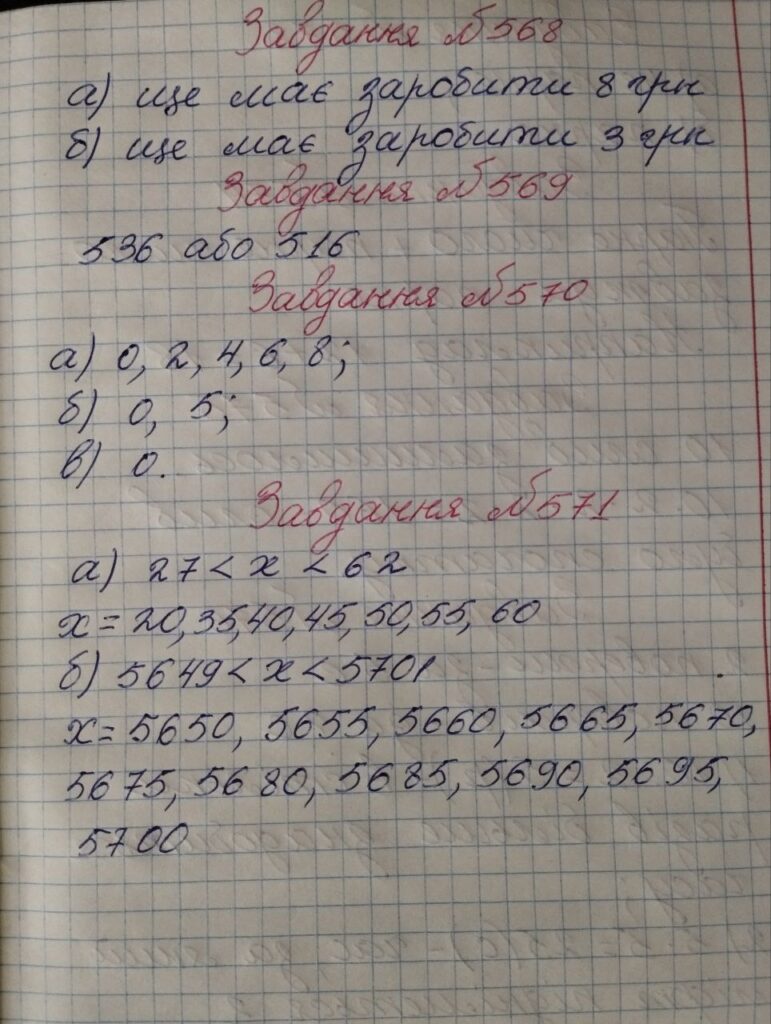 Завдання №568
а) ще має заробити 8 грн
б) ще має заробити 3 грн
Завдання №569
536 або 516
Завдання №570
а) 0, 2, 4, 6, 8;
б) 0, 5;
в) 0.
Завдання №571
а) 27 < x < 62
x = 20, 35, 40, 45, 50, 55, 60
б) 5649 < x < 5701
x = 5650, 5655, 5660, 5665, 5670,
5675, 5680, 5685, 5690, 5695,
5700